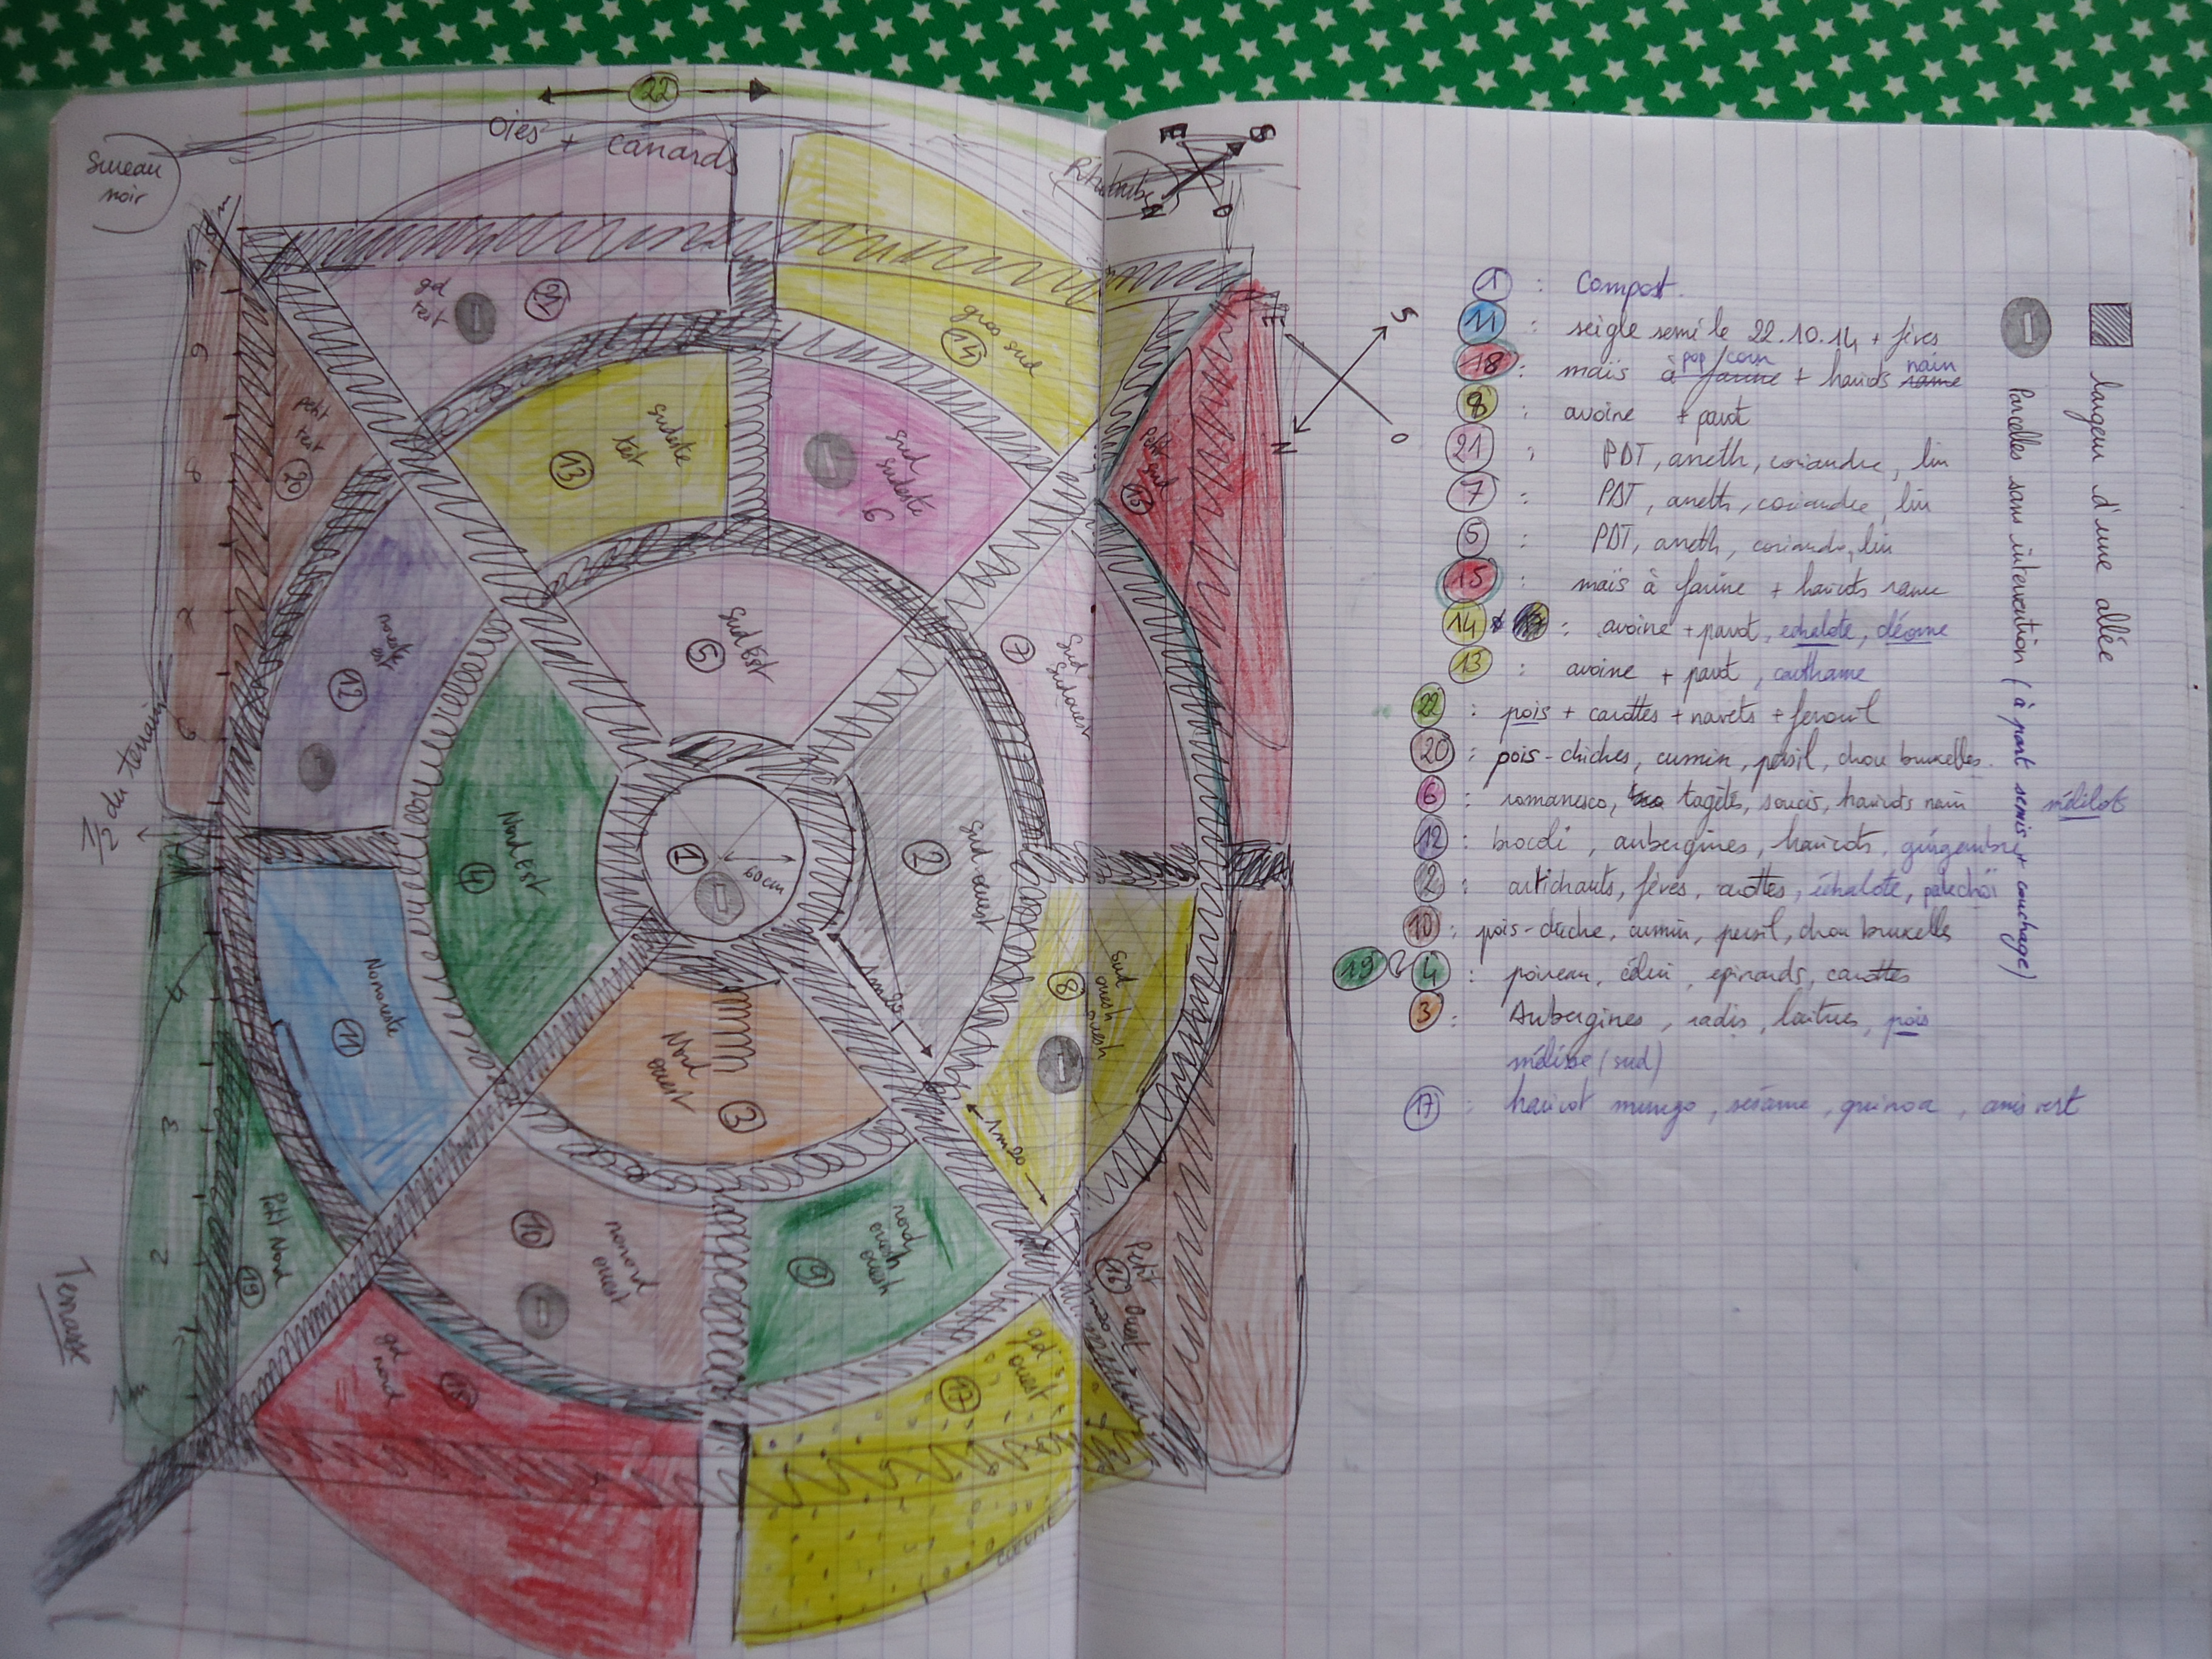 22
oies + canards
Sureau
noir
Rhubarbe
E S
N O
gd
test
21
gros sud
14
petit
test
20
sudeste
test
13
sud
sudeste
6
Petit
sud
15
12
Sud Est
5
7
Sud
Sudouest
1/2 du terrain
Nord Est
4
1
60 cm
2
Sud ouest
1m20
Nonoreste
11
Nord
ouest
3
Sud
ouesh
ouesh
8
1m20
Petit Nord
19
10
nonord
ouest
nord
ouesh
ouesh
9
Petit
ouest
16
Terrasse
1m
gd
nord
18
gd
ouest
17
1 : Compost.
11 : seigle semé le 22.10.14 + fèves
18 : maïs à farine pop corn + haricots rame nain
8 : avoine + pavot
21 : PDT, aneth, coriandre, lin
7 : PDT, aneth, coriandre, lin
5 : PDT, aneth, coriandre, lin
15 : maïs à farine + haricots rame
14 : avoine + pavot, echalote, cléome
13 : avoine + pavot, carthame
22 : pois + carottes + navets + fenouil
20 : pois-chiches, cumin, persil, chou bruxelles.
6 : romanesco, tagètes, soucis, haricots nain mélilot
12 : brocoli, aubergines, haricots, gingembre
2 : artichauts, fèves, carottes, échalote, pakchoï
10 : pois-chiche, cumin, persil, chou bruxelles
19 & 4 : poireau, céleri, epinards, carottes
3 : Aubergines, radis, laitues, pois
mélisse (sud)
17 : haricot mungo, sésame, quinoa, anis vert
E S
N O
largeur d'une allée
Parcelles sans intervention (à part semis + couchage)